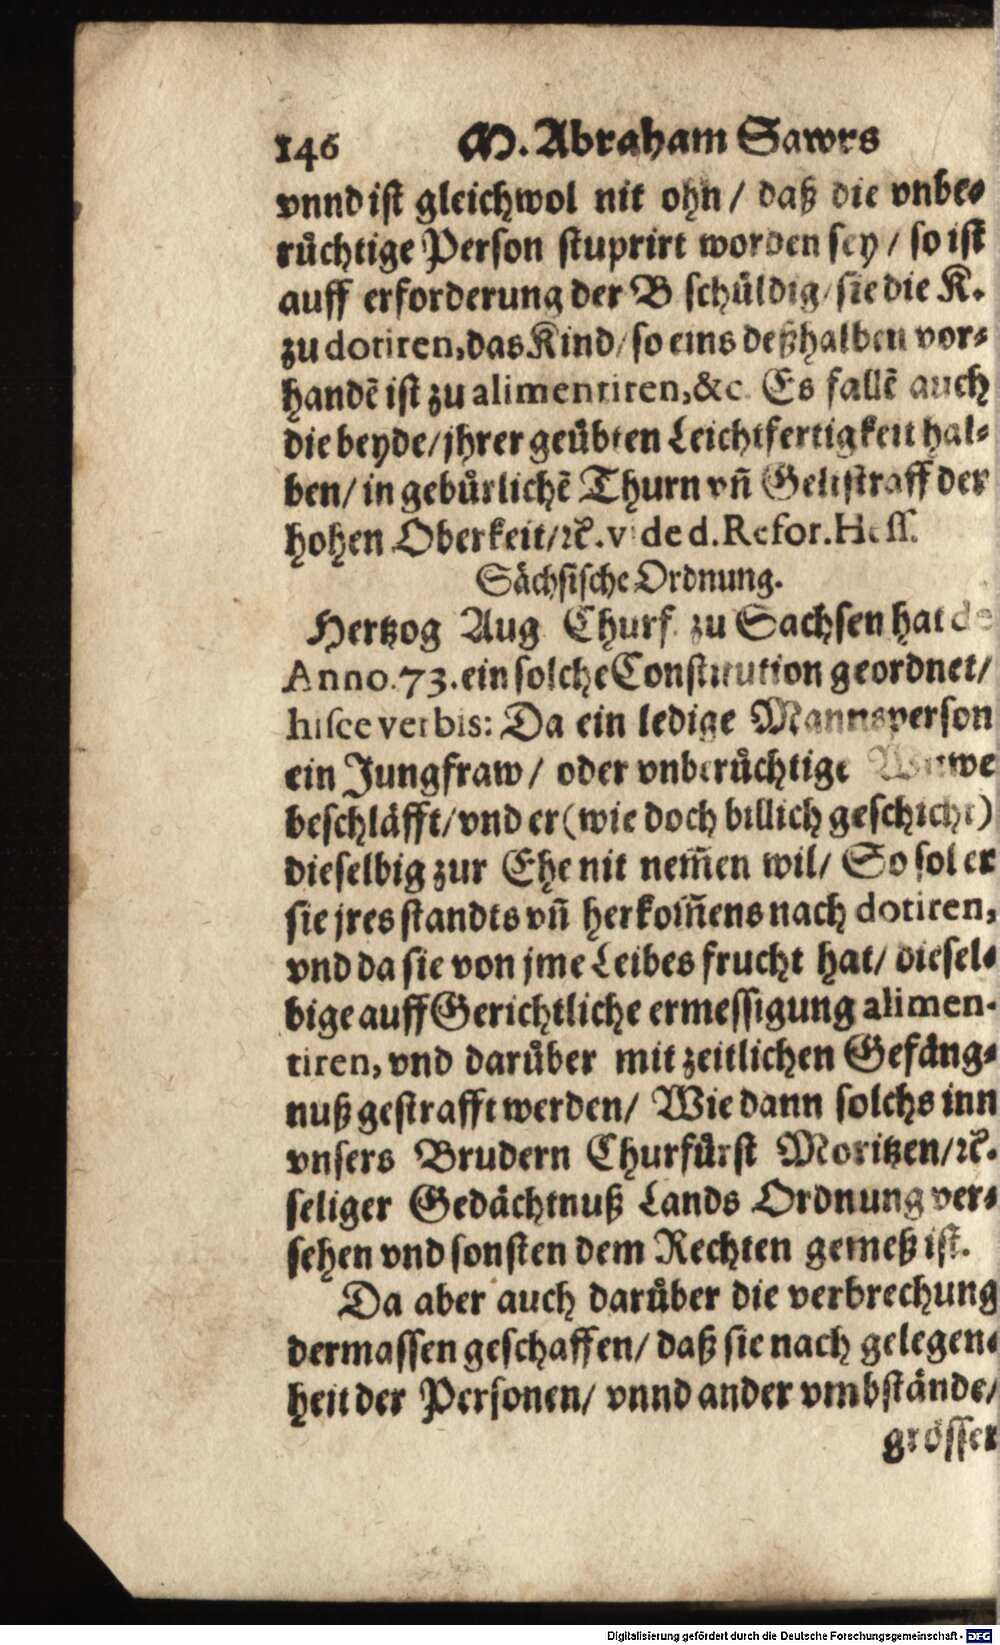 146 M. Abraham Sawrs
vnnd ist gleichwol nit ohn / daß die vnbe-
rüchtige Person stuprirt worden sey / so ist
auff erforderung der B schüldig / sie die K.
zu dotiren, das Kind / so eins deßhalben vor-
handē ist zu alimentiren, &c. Es fallē auch
die beyde / jhrer geübten Leichtfertigkeit hal-
ben / in gebürlichē Thurn vñ Geltstraff der
hohen Oberkeit / ꝛc. vide d. Refor. Hess.
Sächsische Ordnung.
Hertzog Aug. Churf. zu Sachsen hat de
Anno. 73. ein solche Constitution geordnet /
hisce verbis: Da ein ledige Mannsperson
ein Jungfraw / oder vnberüchtige Witwe
beschläfft / vnd er (wie doch billich geschicht)
dieselbig zur Ehe nit nem̃en wil / So sol er
sie jres standts vñ herkom̃ens nach dotiren,
vnd da sie von jme Leibes frucht hat / diesel-
bige auff Gerichtliche ermessigung alimen-
tiren, vnd darüber mit zeitlichen Gefäng-
nuß gestrafft werden / Wie dann solchs inn
vnsers Brudern Churfürst Moritzen / ꝛc.
seliger Gedächtnuß Lands Ordnung ver-
sehen vnd sonsten dem Rechten gemeß ist.
Da aber auch darüber die verbrechung
dermassen geschaffen / daß sie nach gelegen-
heit der Personen / vnnd ander vmbstände /
grösser
Digitalisierung gefördert durch die Deutsche Forschungsgemeinschaft - DFG